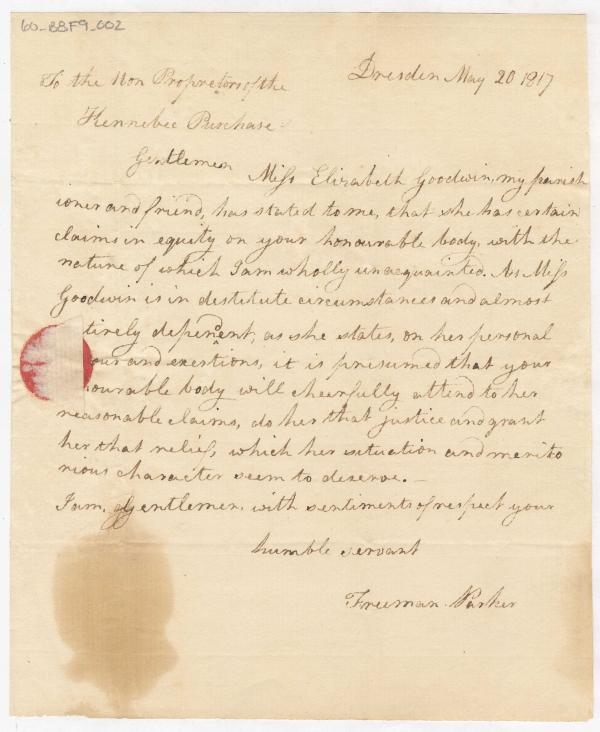 60-B8F9-002
Dresden May 20 1817
To the Hon Proprietors of the
Kennebec Purchase
Gentlemen Miss Elizabeth Goodwin, my parish
ioner and friend, has stated to me, that she has certain
claims in equity on your honourable body, with the
nature of which I am wholly unacquainted. As Miss
Goodwin is in destitute circumstances and almost
tirely dependent, as she states, on her personal
our and exertions, it is presumed that your
ourable body will cheerfully attend to her
reasonable claims, do her that justice and grant
her that relief, which her situation and merito
rious character seem to deserve. —
I am, Gentlemen, with sentiments of respect your
humble servant
Freeman Parker